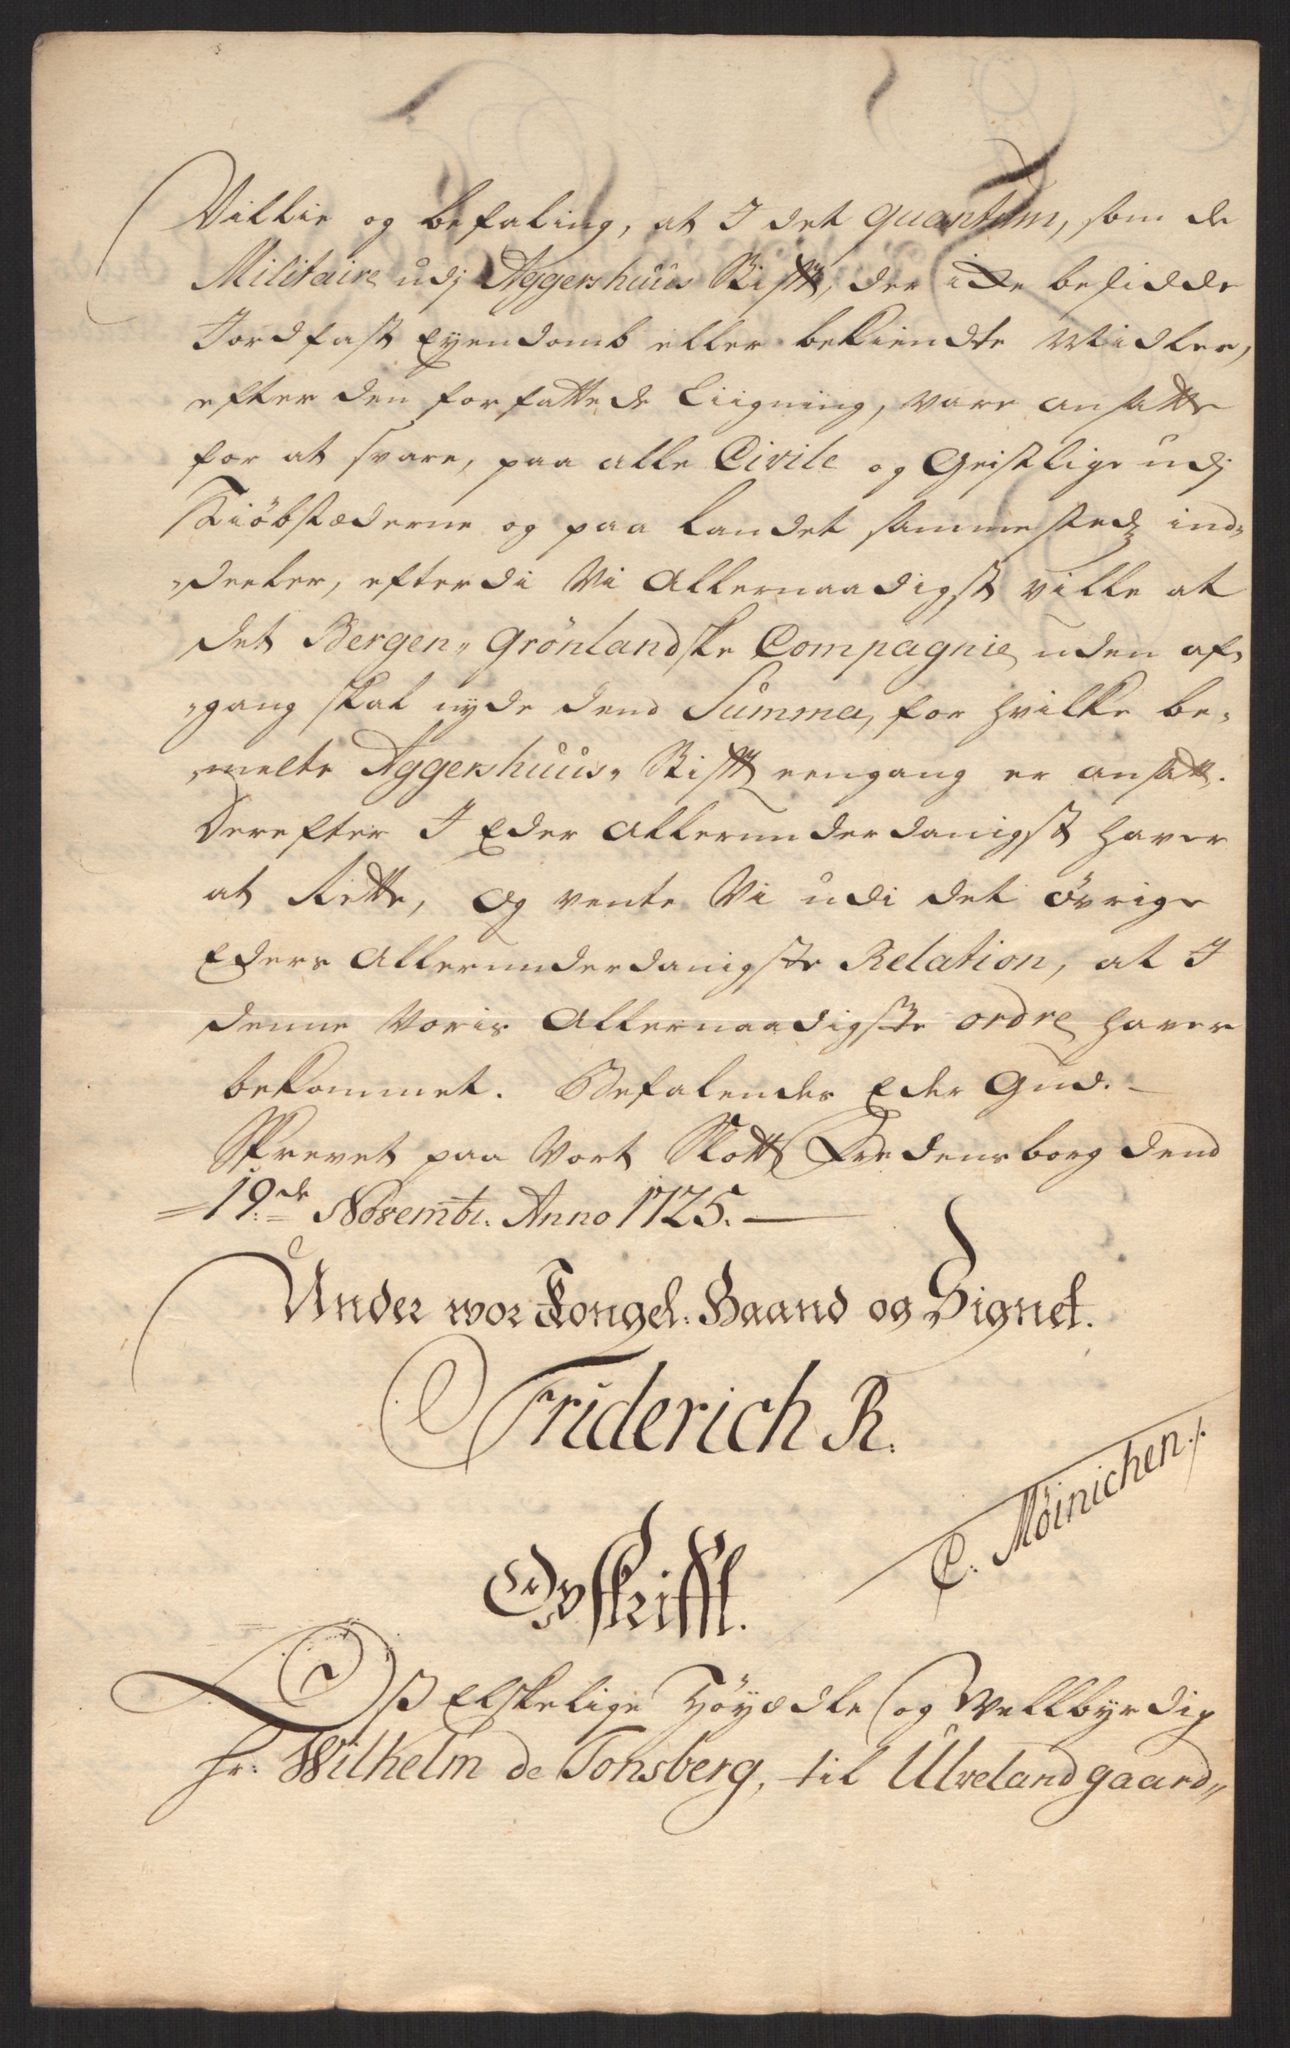 Villie og befaling, at I det quantum, som de
Militaire udj Aggershuus Stifft, der icke besidde
Jordfast Eyendomb eller bekiendte Midler,
efter den forfattede Liigning, vare ansatte
for at svare, paa alle Civile og Geistlige udj
Kiöbstæderne og paa Landet sammestedz ind„
„deeler, efterdi Vi Allernaadigst ville at
det Bergen„ Grönlandske Compagnie uden af„
„gang skal nyde dend Summa, for hvilke be„
„melte Aggershuus„ Stifft eengang er ansatt.
Derefter I Eder Allerunderdanigst haver
at Rette, Og vente Vi udi det övrige
Eders Allerunderdanigste Relation, at I
denne Voris Allernaadigste ordre haver
bekommet. Befalendes Eder Gud. –
Skrevet paa Vort Slott Fredensborg dend
19.de Novembr. Anno 1725. —
Under wor Kongel: Haand og Signet.
Friderich R.
C. Möinichen /.
Opskrifft.
Oß Elskelige Höyædle og Wellbyrdig
Hr: Wilhelm de Tonsberg, til Ulvelandgaard„